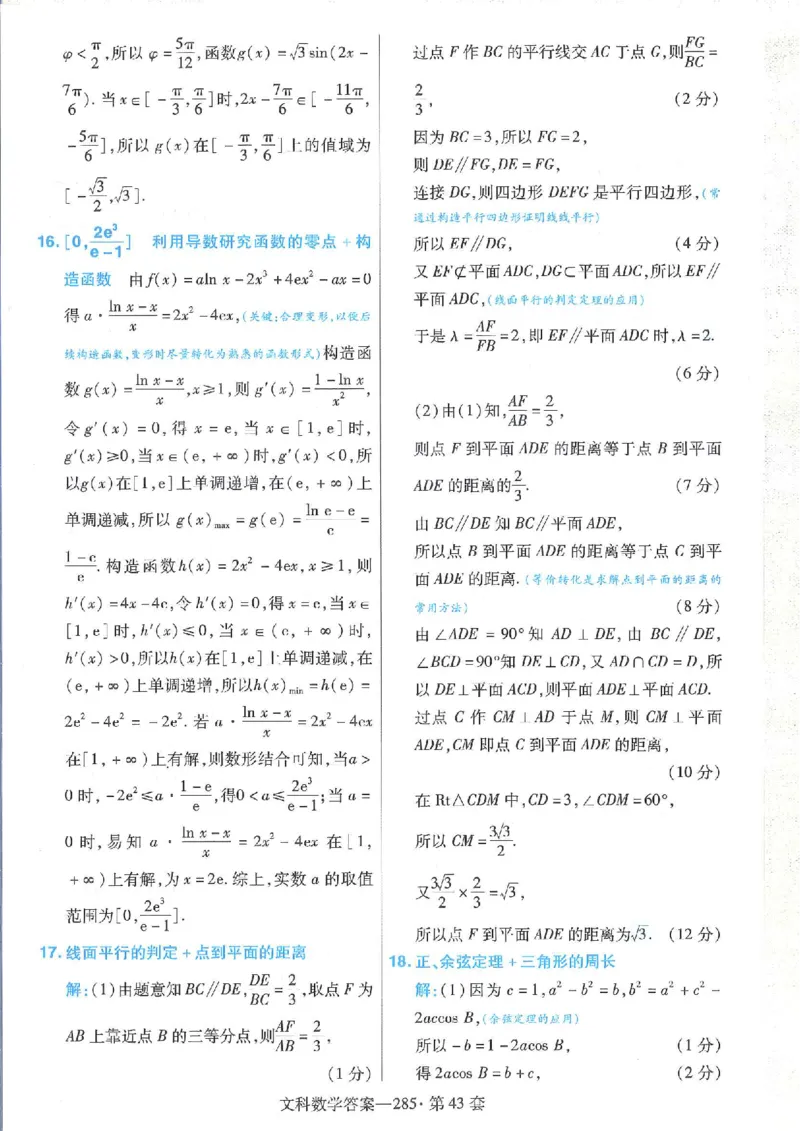 φ<π/2,所以φ=5π/12,函数g(x)=√3sin(2x-
7π/6).当x∈[-π/3,π/6]时,2x-7π/6∈[-11π/6,
-5π/6],所以g(x)在[-π/3,π/6]上的值域为
[-√3/2,√3].
16.[0,2e³/(e-1)] 利用导数研究函数的零点+构
造函数 由f(x)=aln x-2x³+4ex²-ax=0
得a·(ln x-x)/x=2x²-4ex,(关键:合理变形,以便后
续构造函数,变形时尽量转化为熟悉的函数形式)构造函
数g(x)=(ln x-x)/x,x≥1,则g′(x)=(1-ln x)/x²,
令g′(x)=0,得x=e,当x∈[1,e]时,
g′(x)≥0,当x∈(e,+∞)时,g′(x)<0,所
以g(x)在[1,e]上单调递增,在(e,+∞)上
单调递减,所以g(x)max=g(e)=(ln e-e)/e=
(1-e)/e.构造函数h(x)=2x²-4ex,x≥1,则
h′(x)=4x-4e,令h′(x)=0,得x=e,当x∈
[1,e]时,h′(x)≤0,当x∈(e,+∞)时,
h′(x)>0,所以h(x)在[1,e]上单调递减,在
(e,+∞)上单调递增,所以h(x)min=h(e)=
2e²-4e²=-2e².若a·(ln x-x)/x=2x²-4ex
在[1,+∞)上有解,则数形结合可知,当a>
0时,-2e²≤a·(1-e)/e,得0<a≤2e³/(e-1);当a=
0时,易知a·(ln x-x)/x=2x²-4ex在[1,
+∞)上有解,为x=2e.综上,实数a的取值
范围为[0,2e³/(e-1)].
17.线面平行的判定+点到平面的距离
解:(1)由题意知BC∥DE,DE/BC=2/3,取点F为
AB上靠近点B的三等分点,则AF/AB=2/3,
(1分)
过点F作BC的平行线交AC于点G,则FG/BC=
2/3, (2分)
因为BC=3,所以FG=2,
则DE∥FG,DE=FG,
连接DG,则四边形DEFG是平行四边形,(常
通过构造平行四边形证明线线平行)
所以EF∥DG, (4分)
又EF⊄平面ADC,DG⊂平面ADC,所以EF∥
平面ADC,(线面平行的判定定理的应用)
于是λ=AF/FB=2,即EF∥平面ADC时,λ=2.
(6分)
(2)由(1)知,AF/AB=2/3,
则点F到平面ADE的距离等于点B到平面
ADE的距离的2/3. (7分)
由BC∥DE知BC∥平面ADE,
所以点B到平面ADE的距离等于点C到平
面ADE的距离.(等价转化是求解点到平面的距离的
常用方法) (8分)
由∠ADE=90°知AD⊥DE,由BC∥DE,
∠BCD=90°知DE⊥CD,又AD∩CD=D,所
以DE⊥平面ACD,则平面ADE⊥平面ACD.
过点C作CM⊥AD于点M,则CM⊥平面
ADE,CM即点C到平面ADE的距离,
(10分)
在Rt△CDM中,CD=3,∠CDM=60°,
所以CM=3√3/2.
又3√3/2×2/3=√3,
所以点F到平面ADE的距离为√3. (12分)
18.正、余弦定理+三角形的周长
解:(1)因为c=1,a²-b²=b,b²=a²+c²-
2accos B,(余弦定理的应用)
所以-b=1-2acos B, (1分)
得2acos B=b+c, (2分)
文科数学答案—285·第43套